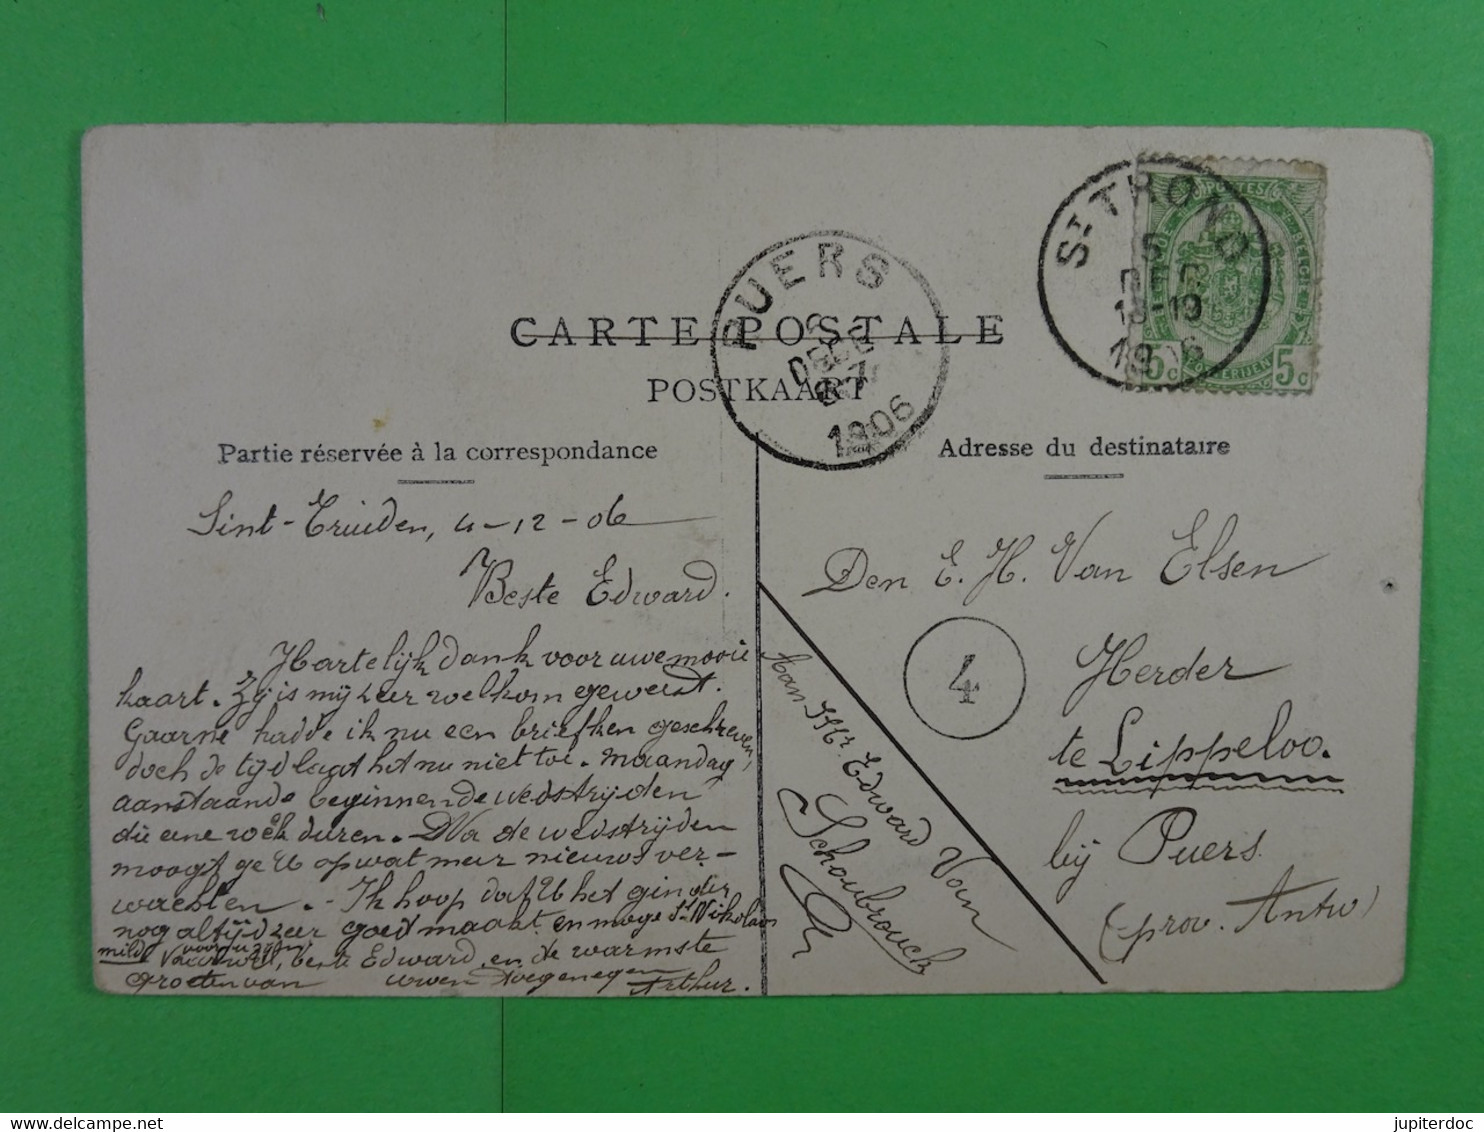 CARTE POSTALE
POSTKAART
Partie réservée à la correspondance
Adresse du destinataire
PUERS
6
DEC
1906
ST TROND
5
DEC
18-19
1906
POSTES
5c
5c
Sint-Truiden, 4-12-06
Beste Edward.
Hartelijk dank voor uwe mooie
kaart. Zij is mij zeer welkom geweest.
Gaarne hadde ik nu een briefken geschreven,
doch de tijd laat het nu niet toe. Maandag
aanstaande beginnen de wedstrijden
die eene week duren. Na de wedstrijden
moogt ge U op wat meer nieuws ver-
wachten. - Ik hoop dat U het ginder
nog altijd zeer goed maakt en moge St Nikolaas
mild voor u zijn
Vaarwel, beste Edward en de warmste
groeten van uwen toegenegen Arthur.
Den E. H. Van Elsen
Herder
te Lippeloo.
bij Puers
(prov. Antw)
4
Aan Mr Edward Van
Schoubrouck
jupiterdoc
delcampe.net